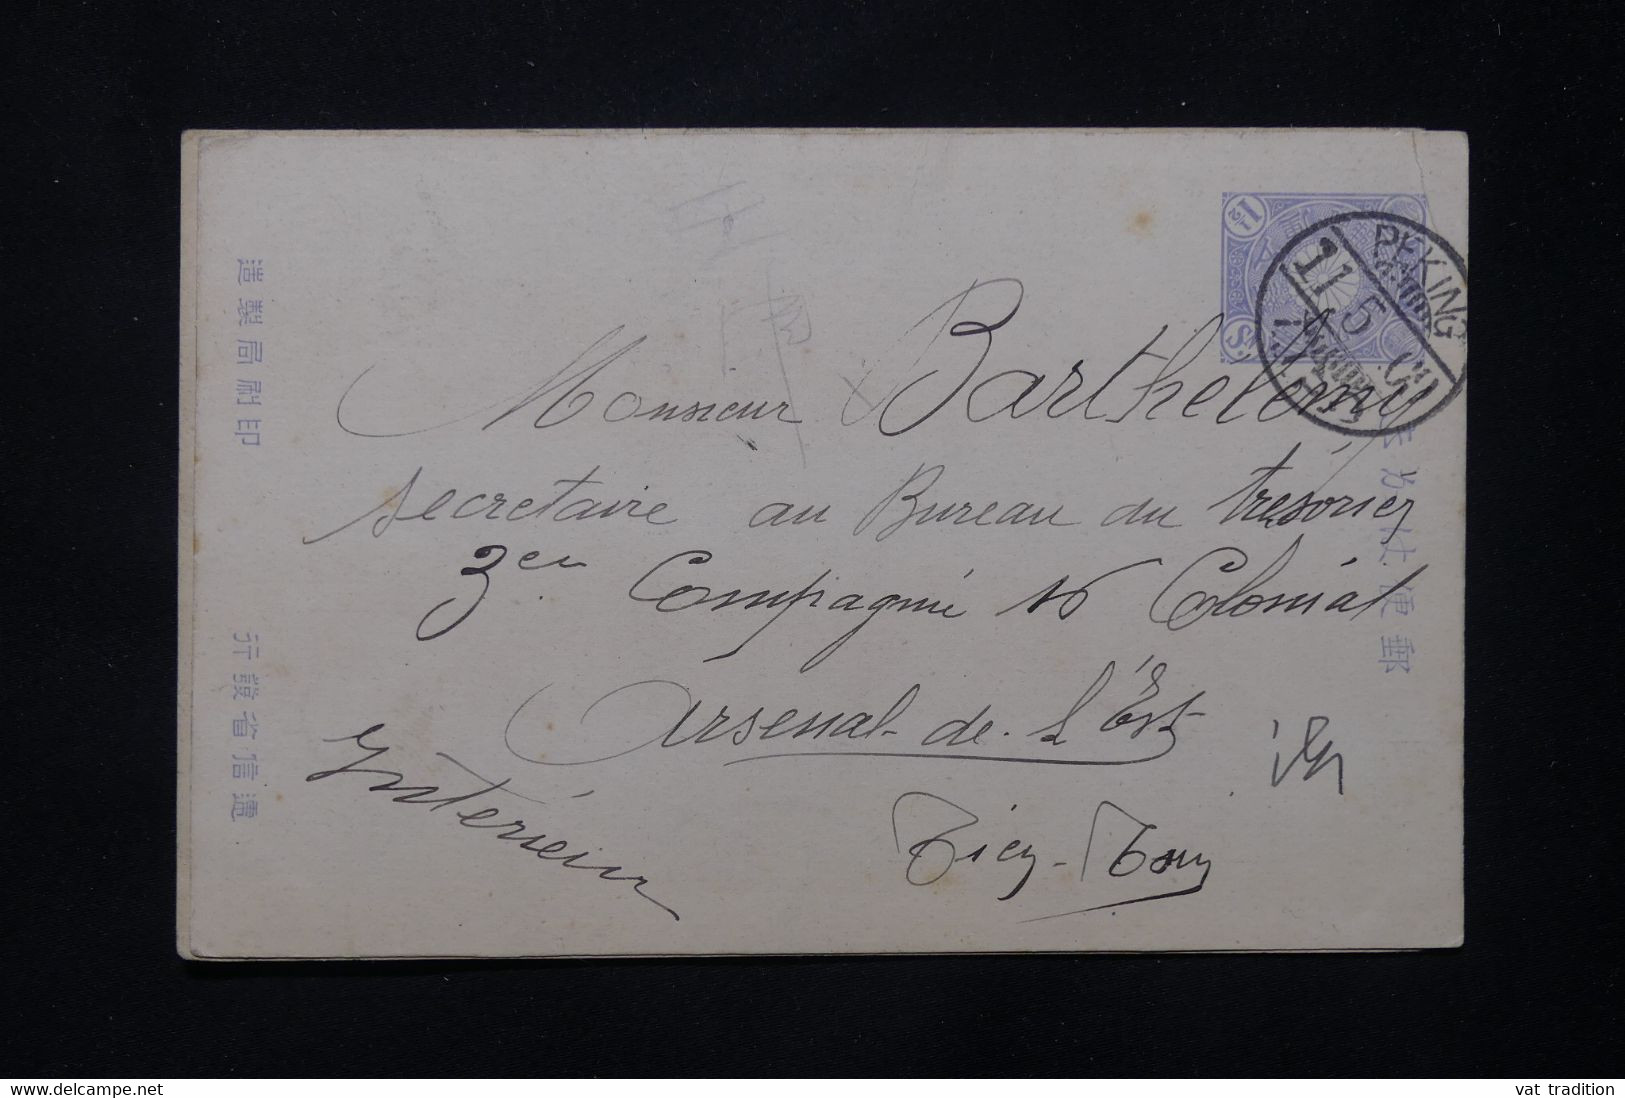 PEKING
11 5
Monsieur Barthelémy
secretaire au Bureau du trésorier
3em Compagnie 16 Colonial
Arsenal de l'Est
Intérieur
印刷局製造
逓信省發行
www.delcampe.net
vat tradition